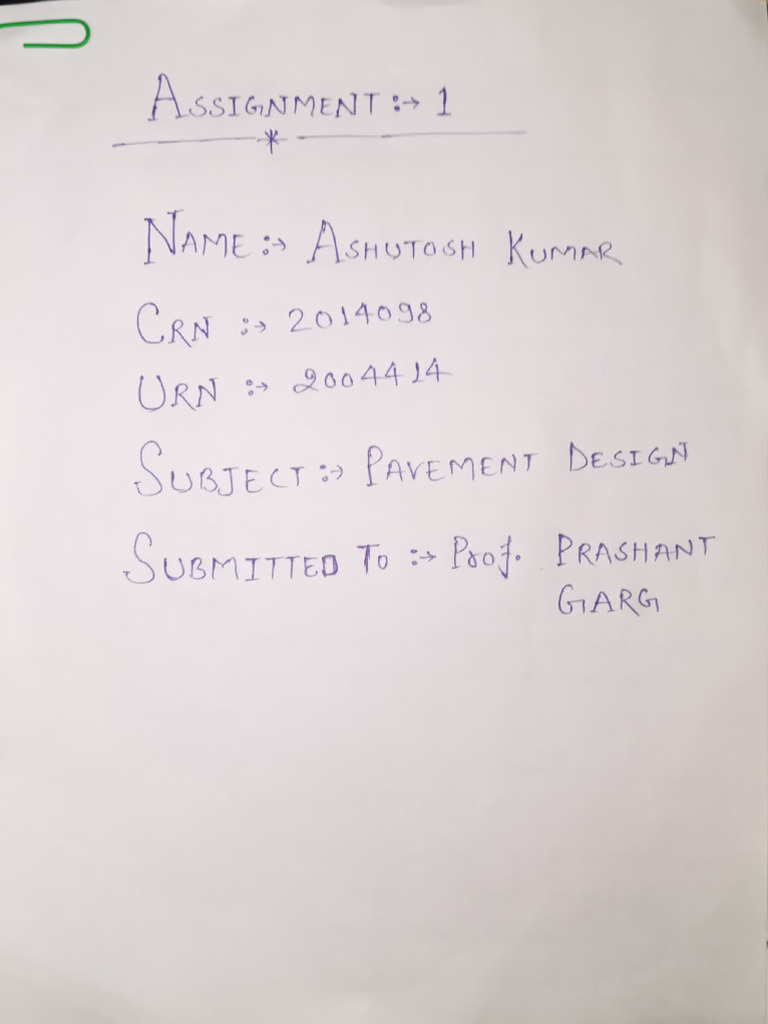 ASSIGNMENT :→ 1
NAME :→ ASHUTOSH KUMAR
CRN :→ 2014098
URN :→ 2004414
SUBJECT :→ PAVEMENT DESIGN
SUBMITTED TO :→ Prof. PRASHANT
GARG